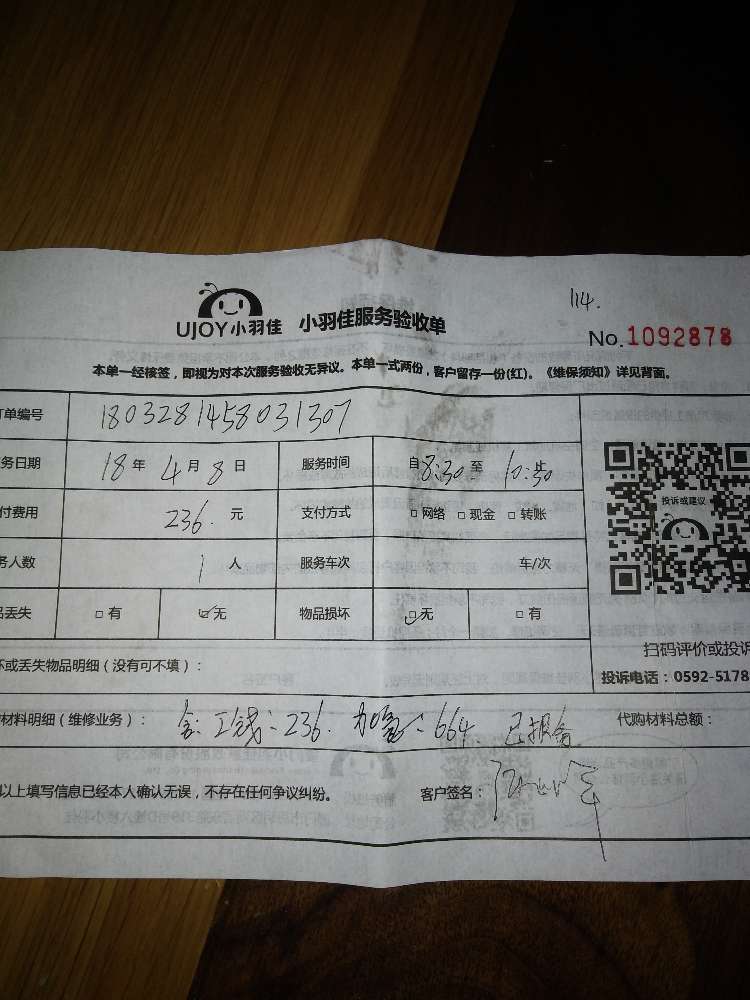 114.
UJOY小羽佳 小羽佳服务验收单
No.1092878
本单一经核签,即视为对本次服务验收无异议。本单一式两份,客户留存一份(红)。《维保须知》详见背面。
单编号 1803281458031307
务日期 18年4月8日 服务时间 自8:30至10:30止
付费用 236.元 支付方式 □网络 □现金 □转账
务人数 1人 服务车次 车/次
丢失 □有 □无 物品损坏 □无 □有
投诉或建议
扫码评价或投诉
坏或丢失物品明细(没有可不填):
投诉电话:0592-5178
材料明细(维修业务): 工钱:236. :664. 已报备
代购材料总额:
以上填写信息已经本人确认无误,不存在任何争议纠纷。 客户签名: